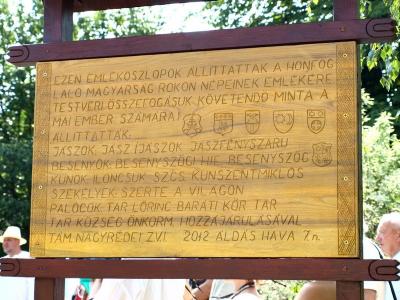 EZEN EMLÉKOSZLOPOK ÁLLÍTTATTAK A HONFOG
LALÓ MAGYARSÁG ROKON NÉPEINEK EMLÉKÉRE
TESTVÉRI ÖSSZEFOGÁSUK KÖVETENDŐ MINTA A
MAI EMBER SZÁMÁRA!
ÁLLÍTTATTÁK:
JÁSZOK: JÁSZ ÍJÁSZOK JÁSZFÉNYSZARU
BESENYŐK: BESENYSZÖGI HIE. BESENYSZÖG
KUNOK: ILONCSUK SZCS. KUNSZENTMIKLÓS
SZÉKELYEK: SZERTE A VILÁGON
PALÓCOK: TAR LŐRINC BARÁTI KÖR TAR
TAR KÖZSÉG ÖNKORM. HOZZÁJÁRULÁSÁVAL
TÁM. NAGYRÉDEI ZVT. 2012 ÁLDÁS HAVA 7.n.